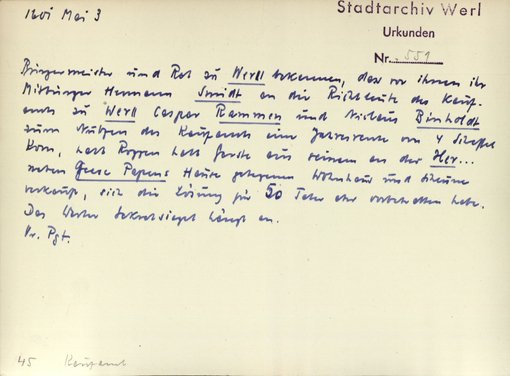 1601 Mai 3
Stadtarchiv Werl
Urkunden
Nr. 551
Bürgermeister und Rat zu Werll bekennen, dass vor ihnen ihr
Mitbürger Hermann Smidt an die Richtleute des Kauf-
amts zu Werll Caspar Rammen und Niclaus Binholdt
zum Nutzen des Kaufamts eine Jahresrente von 4 Scheffel
Korn, halb Roggen halb Gerste aus seinem an der Her...
neben Hause gelegenen Wohnhaus und Scheune
verkauft, sich die Lösung für 50 Taler aber vorbehalten habe.
Das Werler Sekretsiegel hängt an.
Or. Pgt.
45 Kaufamt